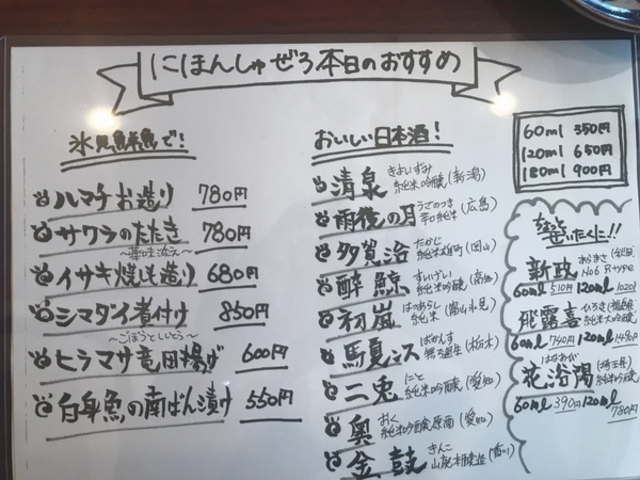 にほんしゅぜろ本日のおすすめ
氷見鮮魚で!
ハマチお造り 780円
サワラのたたき 780円
～薬味添え～
イサキ焼しも造り 680円
シマダイ煮付け 850円
～ごぼうといとう～
ヒラマサ竜田揚げ 600円
白身魚の南ばん漬け 550円
おいしい日本酒!
清泉 きよいずみ 純米吟醸(新潟)
雨後の月 うごのつき 純米(広島)
多賀治 たかじ 純米雄町(岡山)
酔鯨 すいげい 純米吟醸(高知)
初嵐 はつあらし 純米(富山氷見)
馬夏ニス ばかんす 無ろ過生(栃木)
二兎 にと 純米吟醸(愛知)
奥 おく 純米吟醸原酒(愛知)
金鼓 きんこ 山廃本醸造(香川)
60ml 350円
120ml 650円
180ml 900円
ぜいたくに!!
新政 あらまさ No6 R-type
60ml 510円 120ml 1020
飛露喜 ひろき 純米大吟醸
60ml 740円 120ml 1480円
花浴陽 はなあび (埼玉県) 純米吟醸
60ml 390円 120ml 780円